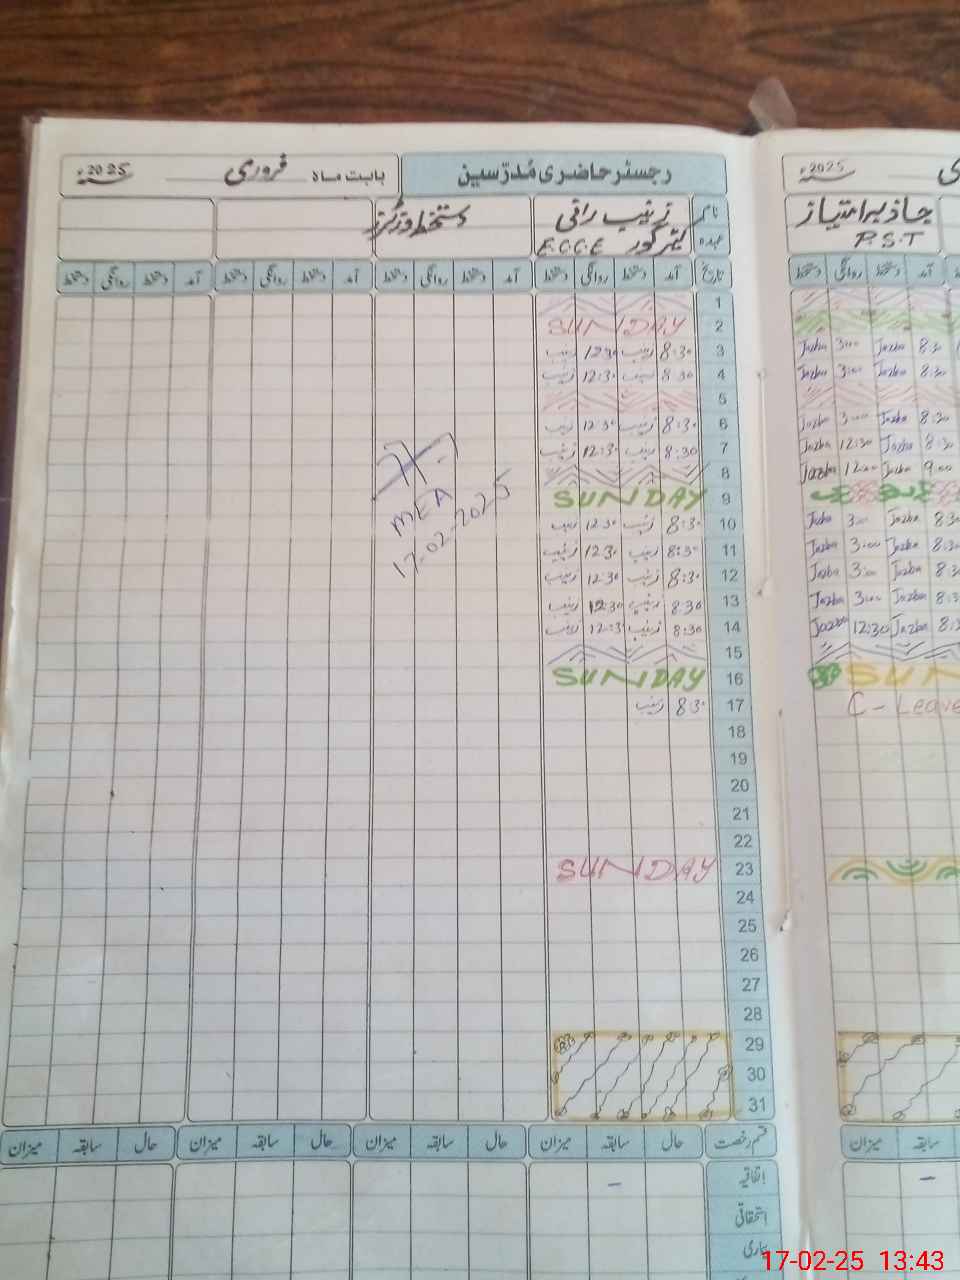 رجسٹر حاضری مُدرّسین
بابت ماہ فروری 2025ء
نام زینب رانی
عہدہ کیئر گور E.C.C.E
دستخط وزیٹرز
تاریخ آمد دستخط روانگی دستخط آمد دستخط روانگی دستخط آمد دستخط روانگی دستخط آمد دستخط روانگی دستخط
1
2 SUNDAY
3 8:30 زینب 12:30 زینب
4 8:30 زینب 12:30 زینب
5
6 8:30 زینب 12:30 زینب
7 8:30 زینب 12:30 زینب
8
9 SUNDAY
10 8:30 زینب 12:30 زینب
11 8:30 زینب 12:30 زینب
12 8:30 زینب 12:30 زینب
13 8:30 زینب 12:30 زینب
14 8:30 زینب 12:30 زینب
15
16 SUNDAY
17 8:30 زینب
18
19
20
21
22
23 SUNDAY
24
25
26
27
28
29
30
31
MEA
17-02-2025
قسم رخصت حال سابقہ میزان حال سابقہ میزان حال سابقہ میزان حال سابقہ میزان
اتفاقیہ –
استحقاقی
بیماری
2025ء
جاذبہ امتیاز
P.S.T
آمد دستخط روانگی دستخط
8:30 Jazba 3:00 Jazba
8:30 Jazba 3:00 Jazba
8:30 Jazba 3:00 Jazba
8:30 Jazba 12:30 Jazba
9:00 Jazba 12:00 Jazba
8:30 Jazba 3:00 Jazba
8:30 Jazba 3:00 Jazba
8:30 Jazba 3:00 Jazba
8:30 Jazba 3:00 Jazba
8:30 Jazba 12:30 Jazba
SUN
C - Leave
سابقہ میزان
–
17-02-25 13:43